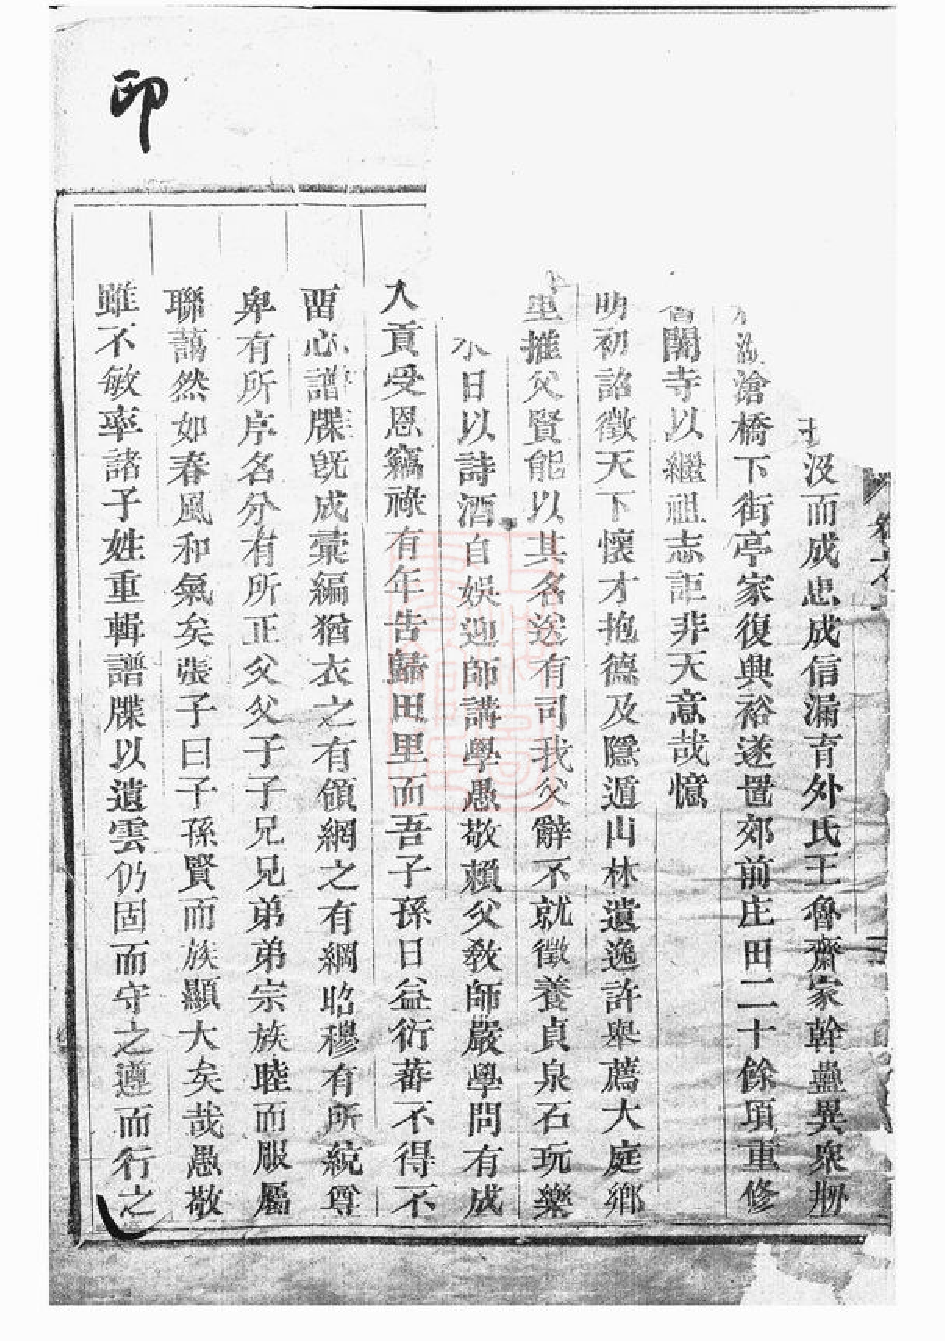 印
沒而成忠成信漏育外氏王魯齋家幹蠱異衆剏
滄橋下街亭家復興裕遂置郊前庄田二十餘項重修
闍寺以繼祖志詎非天意哉憶
明初詔徵天下懷才抱德及隱遁山林遺逸許舉薦大庭鄉
里推父賢能以其名送有司我父辭不就徵養貞泉石玩樂
水日以詩酒自娛迎師講學愚敬賴父教師嚴學問有成
入貢受恩竊祿有年告歸田里而吾子孫日益衍蕃不得不
畱心譜牒旣成彙編猶衣之有領網之有綱昭穆有所統尊
卑有所序名分有所正父父子子兄兄弟弟宗族睦而服屬
聯藹然如春風和氣矣張子曰子孫賢而族顯大矣哉愚敬
雖不敏率諸子姓重輯譜牒以遺雲仍固而守之遵而行之